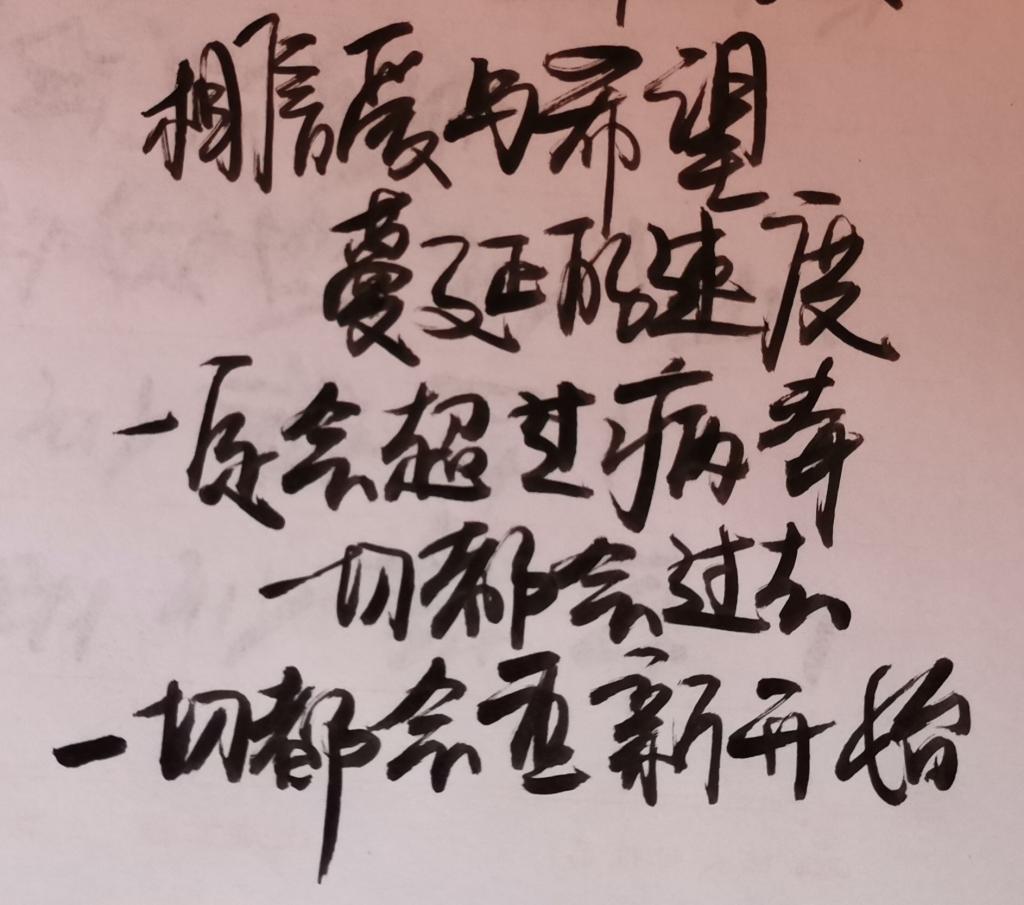 相信爱与希望
蔓延的速度
一定会超过病毒
一切都会过去
一切都会重新开始